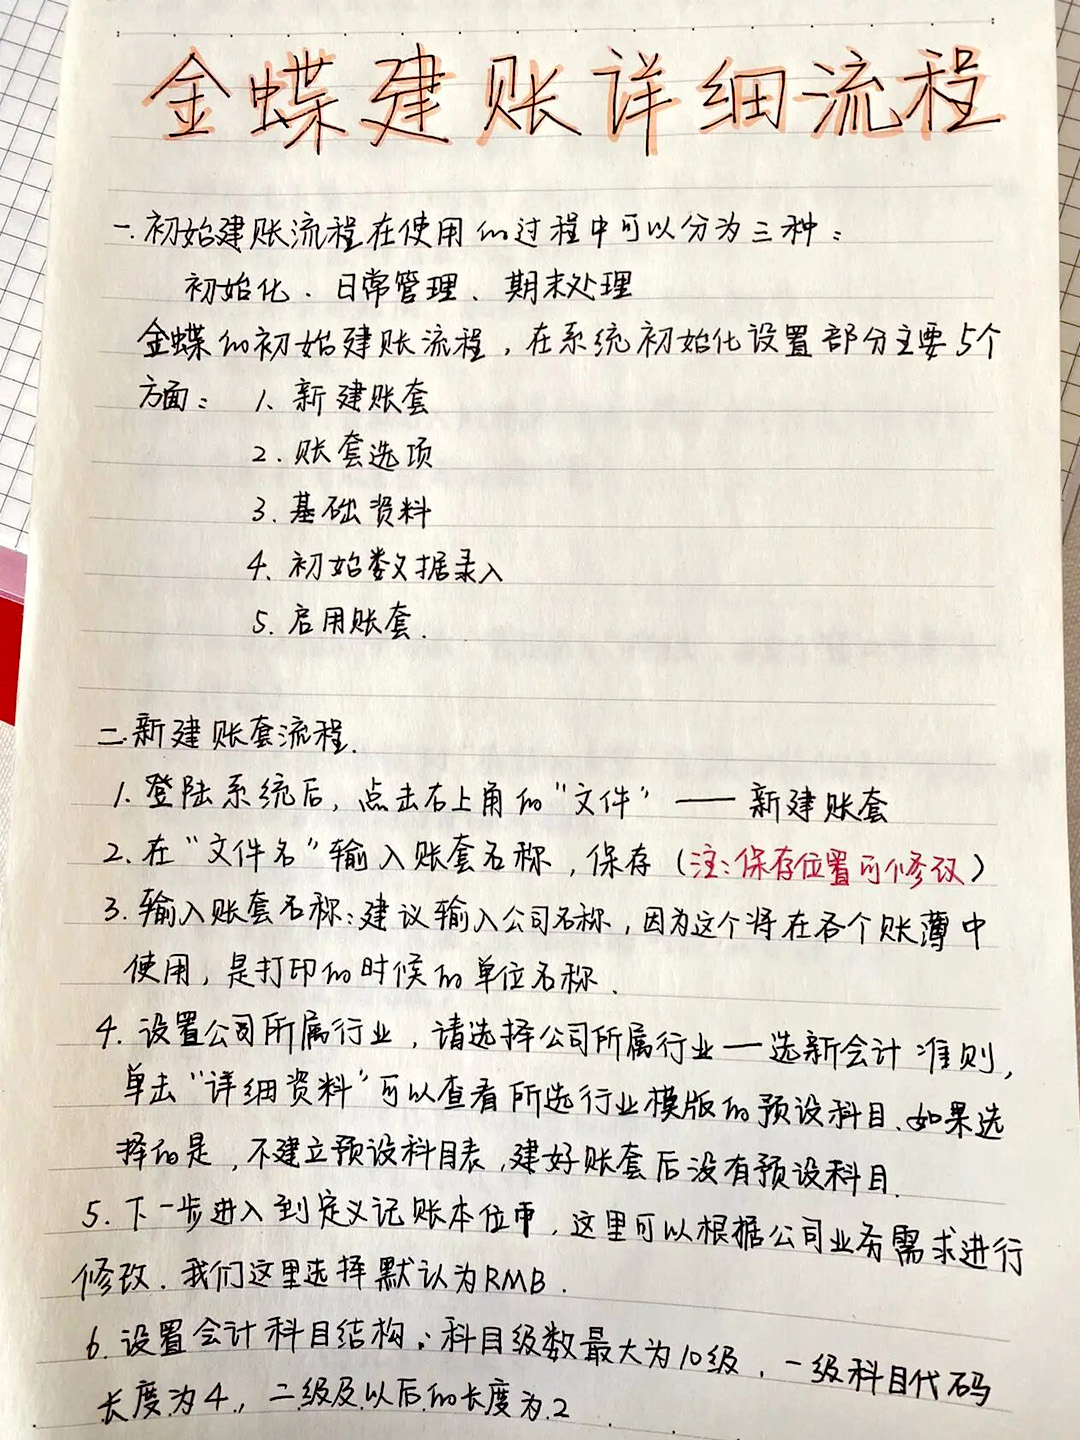 金蝶建账详细流程
一.初始建账流程在使用的过程中可以分为三种：
初始化、日常管理、期末处理
金蝶的初始建账流程，在系统初始化设置部分主要5个
方面：1、新建账套
2.账套选项
3.基础资料
4.初始数据录入
5.启用账套.
二.新建账套流程.
1.登陆系统后，点击右上角的“文件”——新建账套
2.在“文件名”输入账套名称，保存（注:保存位置可修改）
3.输入账套名称:建议输入公司名称，因为这个将在各个账薄中
使用，是打印的时候的单位名称.
4.设置公司所属行业，请选择公司所属行业—选新会计准则，
单击“详细资料”可以查看所选行业模版的预设科目、如果选
择的是，不建立预设科目表,建好账套后没有预设科目.
5.下一步进入到定义记账本位币，这里可以根据公司业务需求进行
修改.我们这里选择默认为RMB.
6.设置会计科目结构：科目级数最大为10级，一级科目代码
长度为4，二级及以后的长度为2